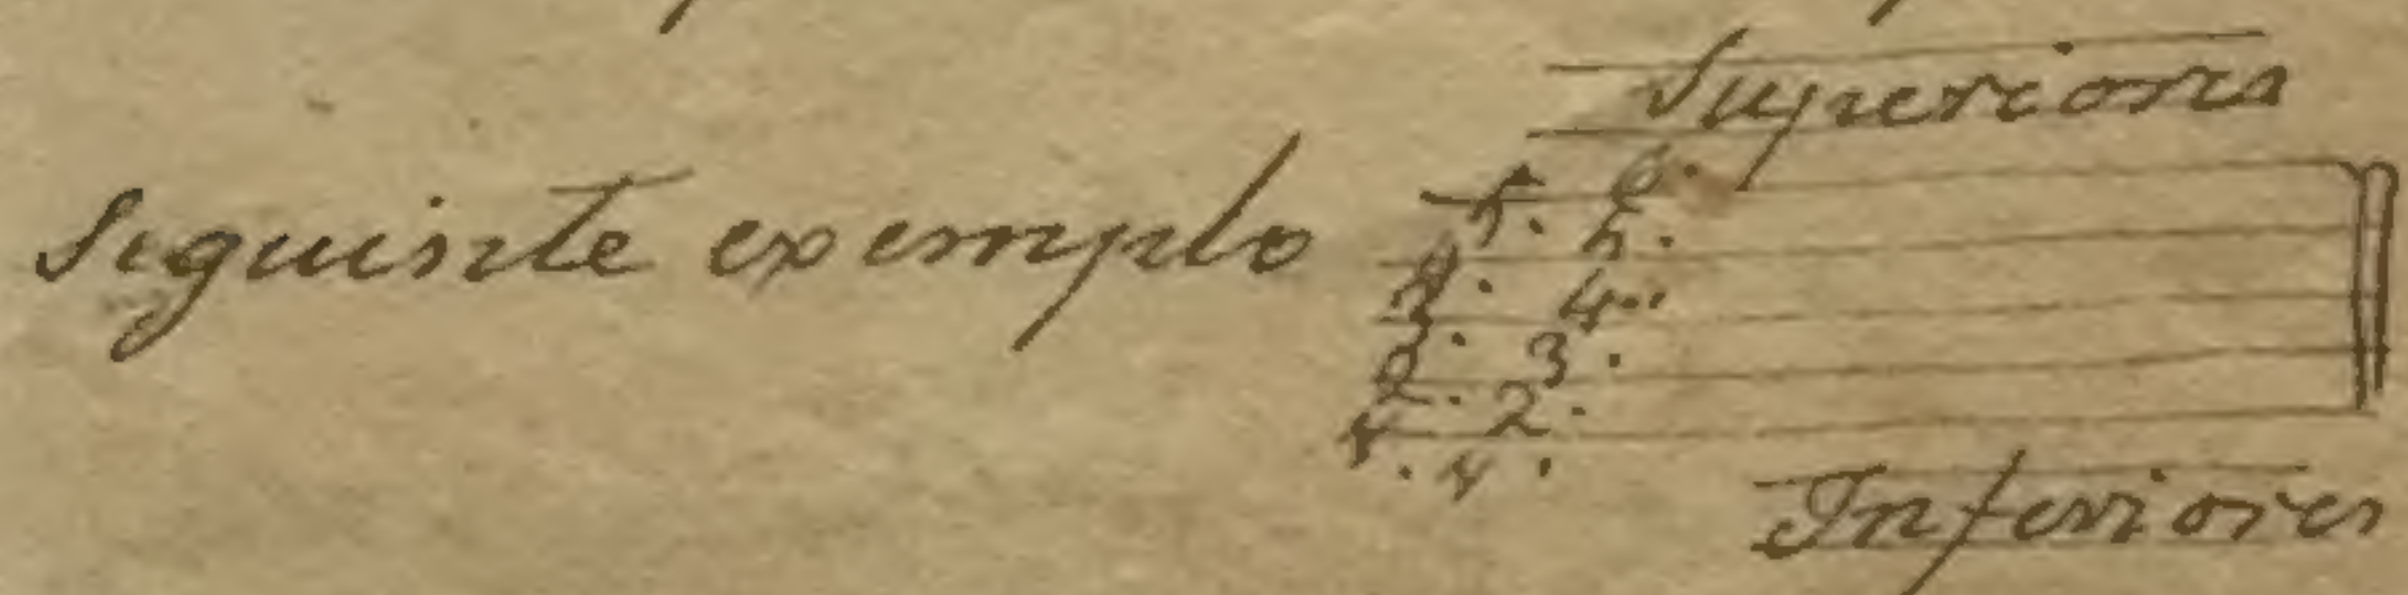 Superiores
siguiente exemplo
5. 6.
4. 5.
3. 4.
2. 3.
1. 2.
1.
Inferiores